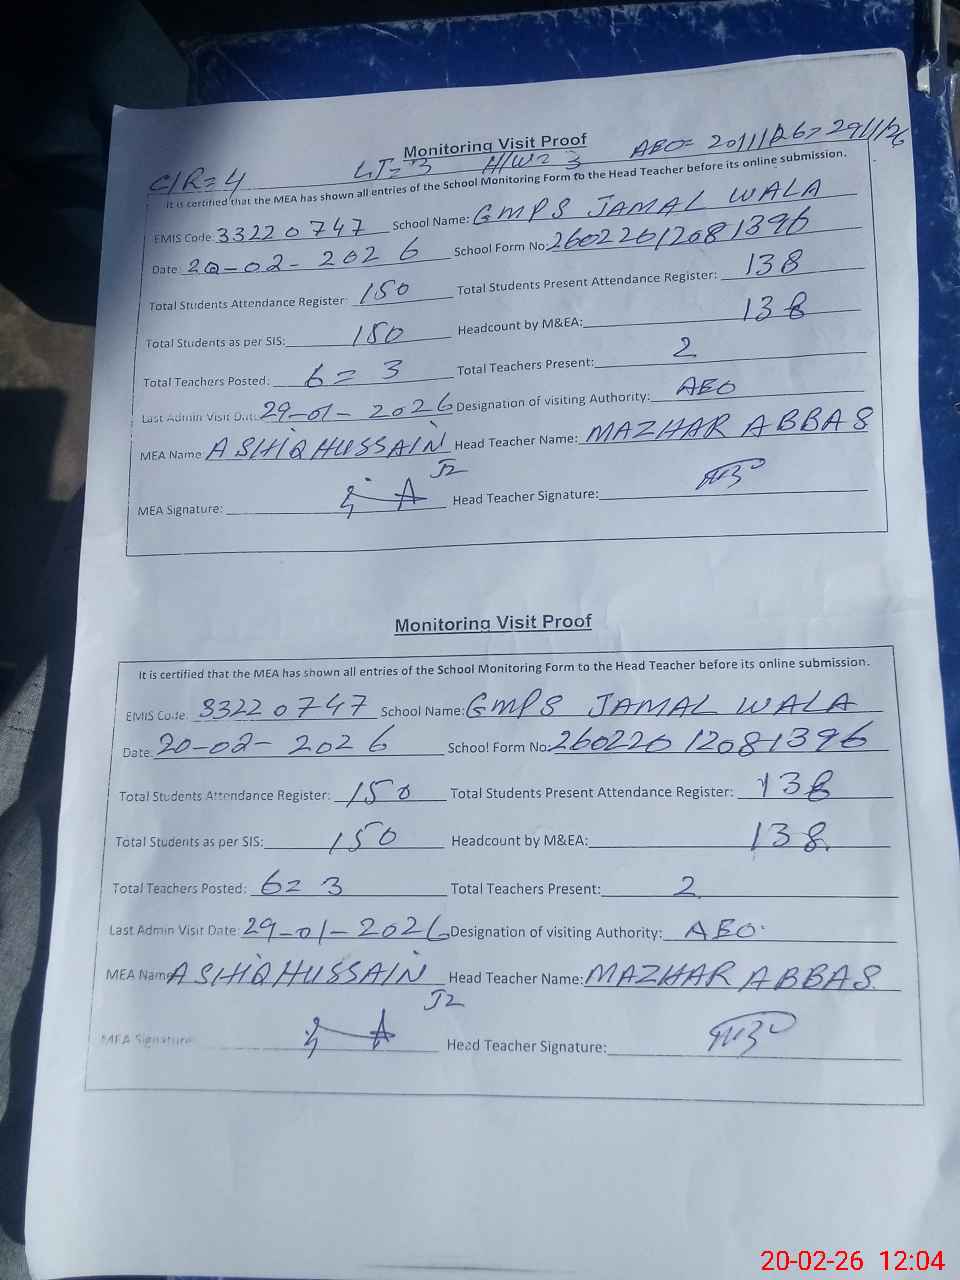 Monitoring Visit Proof
C/R=4 LT=3 H/W=3 AEO= 20/11/26 > 29/1/26
It is certified that the MEA has shown all entries of the School Monitoring Form to the Head Teacher before its online submission.
EMIS Code: 33220747 School Name: GMPS JAMAL WALA
Date: 20-02-2026 School Form No: 26022012081396
Total Students Attendance Register: 150 Total Students Present Attendance Register: 138
Total Students as per SIS: 150 Headcount by M&EA: 138
Total Teachers Posted: 6=3 Total Teachers Present: 2
Last Admin Visit Date: 29-01-2026 Designation of visiting Authority: AEO
MEA Name ASHIQ HUSSAIN Head Teacher Name: MAZHAR ABBAS
MEA Signature: Head Teacher Signature:
Monitoring Visit Proof
It is certified that the MEA has shown all entries of the School Monitoring Form to the Head Teacher before its online submission.
EMIS Code: 33220747 School Name: GMPS JAMAL WALA
Date: 20-02-2026 School Form No: 26022012081396
Total Students Attendance Register: 150 Total Students Present Attendance Register: 138
Total Students as per SIS: 150 Headcount by M&EA: 138
Total Teachers Posted: 6=3 Total Teachers Present: 2
Last Admin Visit Date: 29-01-2026 Designation of visiting Authority: AEO
MEA Name ASHIQ HUSSAIN Head Teacher Name: MAZHAR ABBAS
MEA Signature: Head Teacher Signature:
20-02-26 12:04